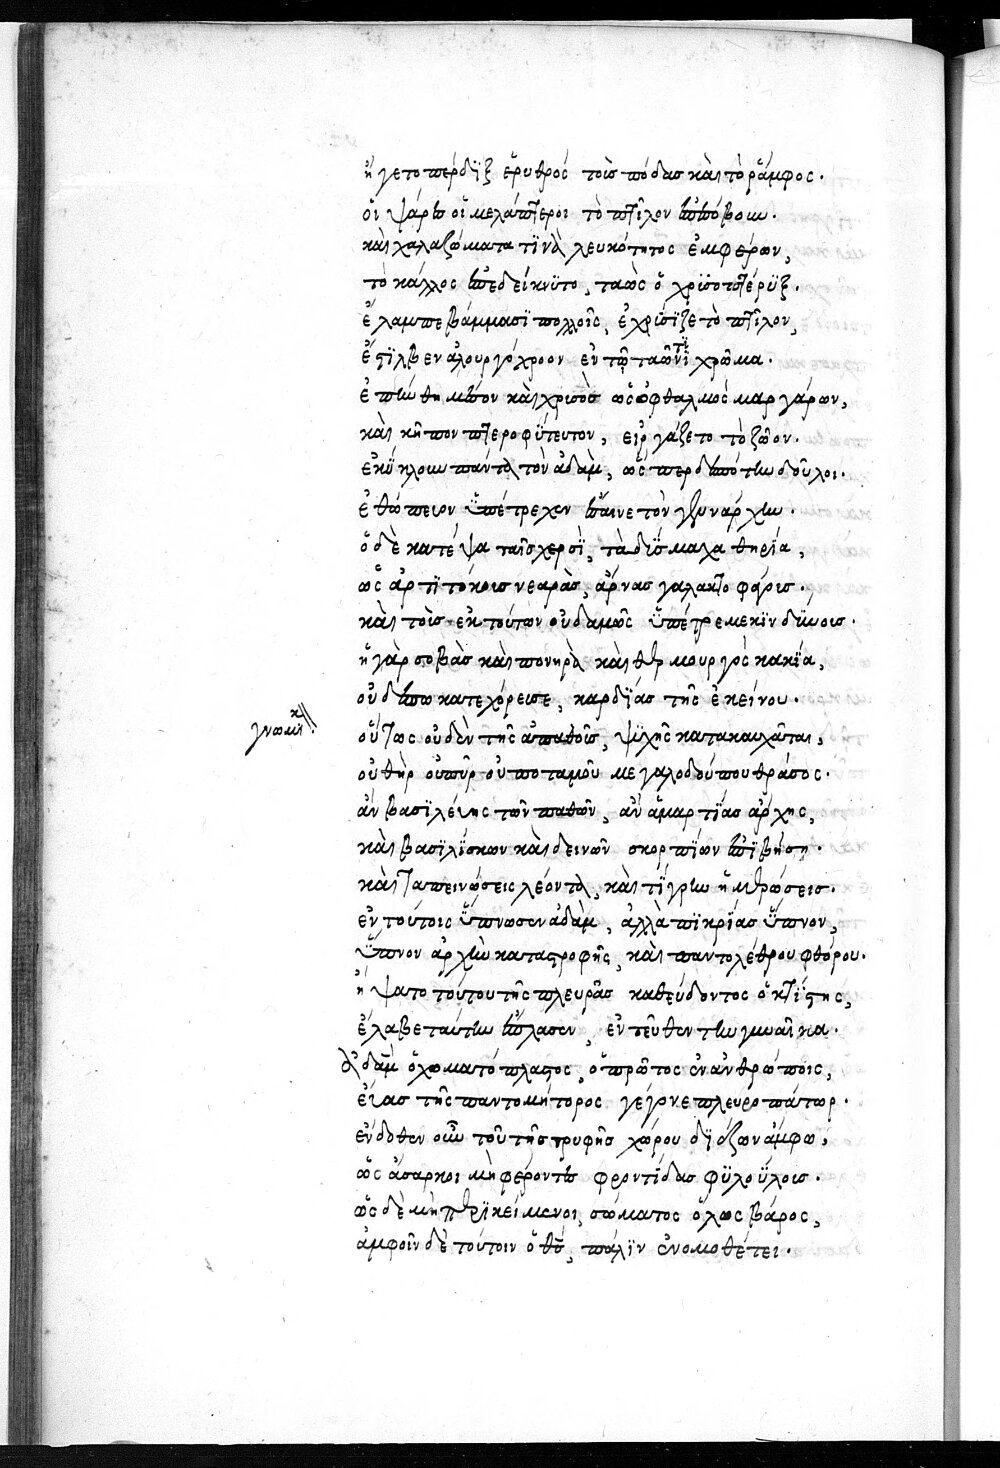 ἥγετο πέρδϊξ ἐρυθρός τοῖς πόδας καὶ τὸ ῥάμφος·
οἱ ψάρες οἱ μελάπτεροι τὸ πτΐλον ἐπόβουν·
καὶ χαλαζώματα τϊνὰ λευκότητος ἐμφέρων,
τὸ κάλλος ἐπεδείκνϋτο, ταὼς ὁ χρϋσοπτέρϋξ·
ἔλαμπε βάμμασϊ πολλοῖς, ἐχρύσϊζε τὸ πτΐλον,
ἔστϊλβεν ἁλουργόχροον ἐν τῷ ταῶνϊ χρῶμα·
ἐπηνθημένον καὶ χρυσὸς ὡς ὀφθαλμὸς μαργάρων,
καὶ κῆπον πτεροφΰτευτον, εἰργάζετο τὸ ζῶον·
ἐκΰκλουν πάντα τὸν ἀδὰμ, ὥσπερ δεσπότην δοῦλοι·
ἐθώπευον ὑπέτρεχον
ὁ δὲ κατέψα ταῖς χερσΐ, τὰ δΰσμαχα θηρΐα,
ὡς ἀρτϊτόκοις νεαρὰς, ἄρνας γαλακτοφόροις·
καὶ τοῖς ἐκ τούτων οὐδαμῶς ὑπέτρεμε κϊνδΰνοις·
ἡ γὰρ σοβὰς καὶ πονηρὰ καὶ θερμουργὸς κακΐα,
οὐδέπω κατεχόρευσε, καρδΐας τῆς ἐκείνου·
γνωμικ
οὕτως οὐδὲν τῆς ἀπαθοῦς, ψϋχῆς κατακαυχᾶται,
οὐ θὴρ οὐ πῦρ οὐ ποταμοῦ μεγαλοδούπου θράσος·
ἂν βασϊλεύῃς τῶν παθῶν, ἂν ἁμαρτΐας ἄρχῃς,
καὶ βασϊλΐσκων καὶ δεινῶν σκορπΐων ἐπϊβήσῃ·
καὶ ταπεινώσεις λέοντα, καὶ τΐγριν ἡμερώσεις·
ἐν τούτοις ὕπνωσεν ἀδὰμ, ἀλλὰ πϊκρΐας ὕπνον,
ὕπνον ἀρχὴν καταστροφῆς, καὶ παντολέθρου φθόρου·
ἥψατο τούτου τῆς πλευρᾶς καθεύδοντος ὁ κτΐστης,
ἔλαβε ταύτην ἔπλασεν, ἐντεῦθεν τὴν γυναῖκα·
ἀδὰμ ὁ χωματόπλαστος, ὁ πρῶτος ἐν ἀνθρώποις,
εὔας τῆς παντομήτορος γέγονε πλευροπάτωρ·
ἔνδοθεν οὖν τοῦ τῆς τρυφῆς χώρου δϊέζων ἄμφω,
ὡς ἄσαρκοι μὴ φέροντες φροντίδας φϋλοΰλοις·
ὡς δὲ μὴ περϊκείμενοι, σώματος ὅλως βάρος,
ἀμφοῖν δὲ τούτοιν ὁ θς, πάλϊν ἐνομοθέτει·